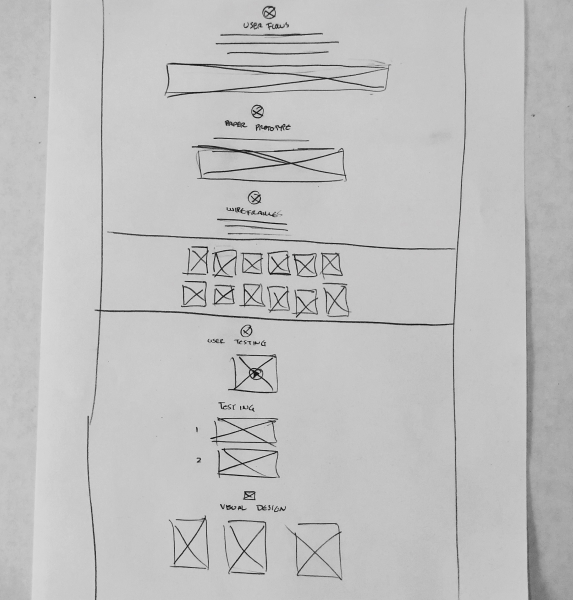 USER FLOWS
PAPER PROTOTYPE
WIREFRAMES
USER TESTING
TESTING
1
2
VISUAL DESIGN